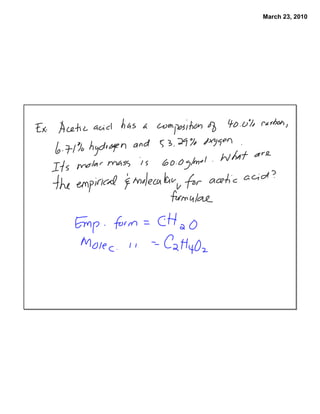 March 23, 2010
Ex. Acetic acid has a composition of 40.0% carbon,
6.71% hydrogen and 53.29% oxygen.
Its molar mass is 60.0g/mol. What are
the empirical & molecular for acetic acid?
formulae
Emp. form = CH2O
Molec. " = C2H4O2